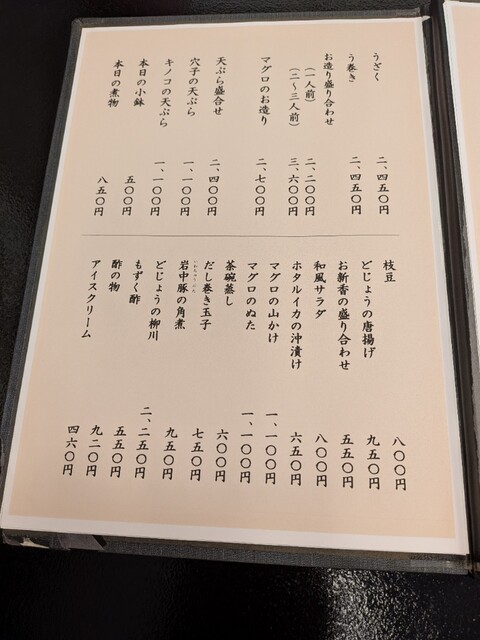 うざく 二、四五〇円
う巻き 二、四五〇円
お造り盛り合わせ
(一人前) 二、二〇〇円
(二〜三人前) 三、六〇〇円
マグロのお造り 二、七〇〇円
天ぷら盛合せ 二、四〇〇円
穴子の天ぷら 一、一〇〇円
キノコの天ぷら 一、一〇〇円
本日の小鉢 五〇〇円
本日の煮物 八五〇円
枝豆 八〇〇円
どじょうの唐揚げ 九五〇円
お新香の盛り合わせ 五五〇円
和風サラダ 八〇〇円
ホタルイカの沖漬け 六五〇円
マグロの山かけ 一、一〇〇円
マグロのぬた 一、一〇〇円
茶碗蒸し 六〇〇円
だし巻き玉子 七五〇円
岩中豚の角煮 九五〇円
どじょうの柳川 二、二五〇円
もずく酢 五五〇円
酢の物 九二〇円
アイスクリーム 四六〇円